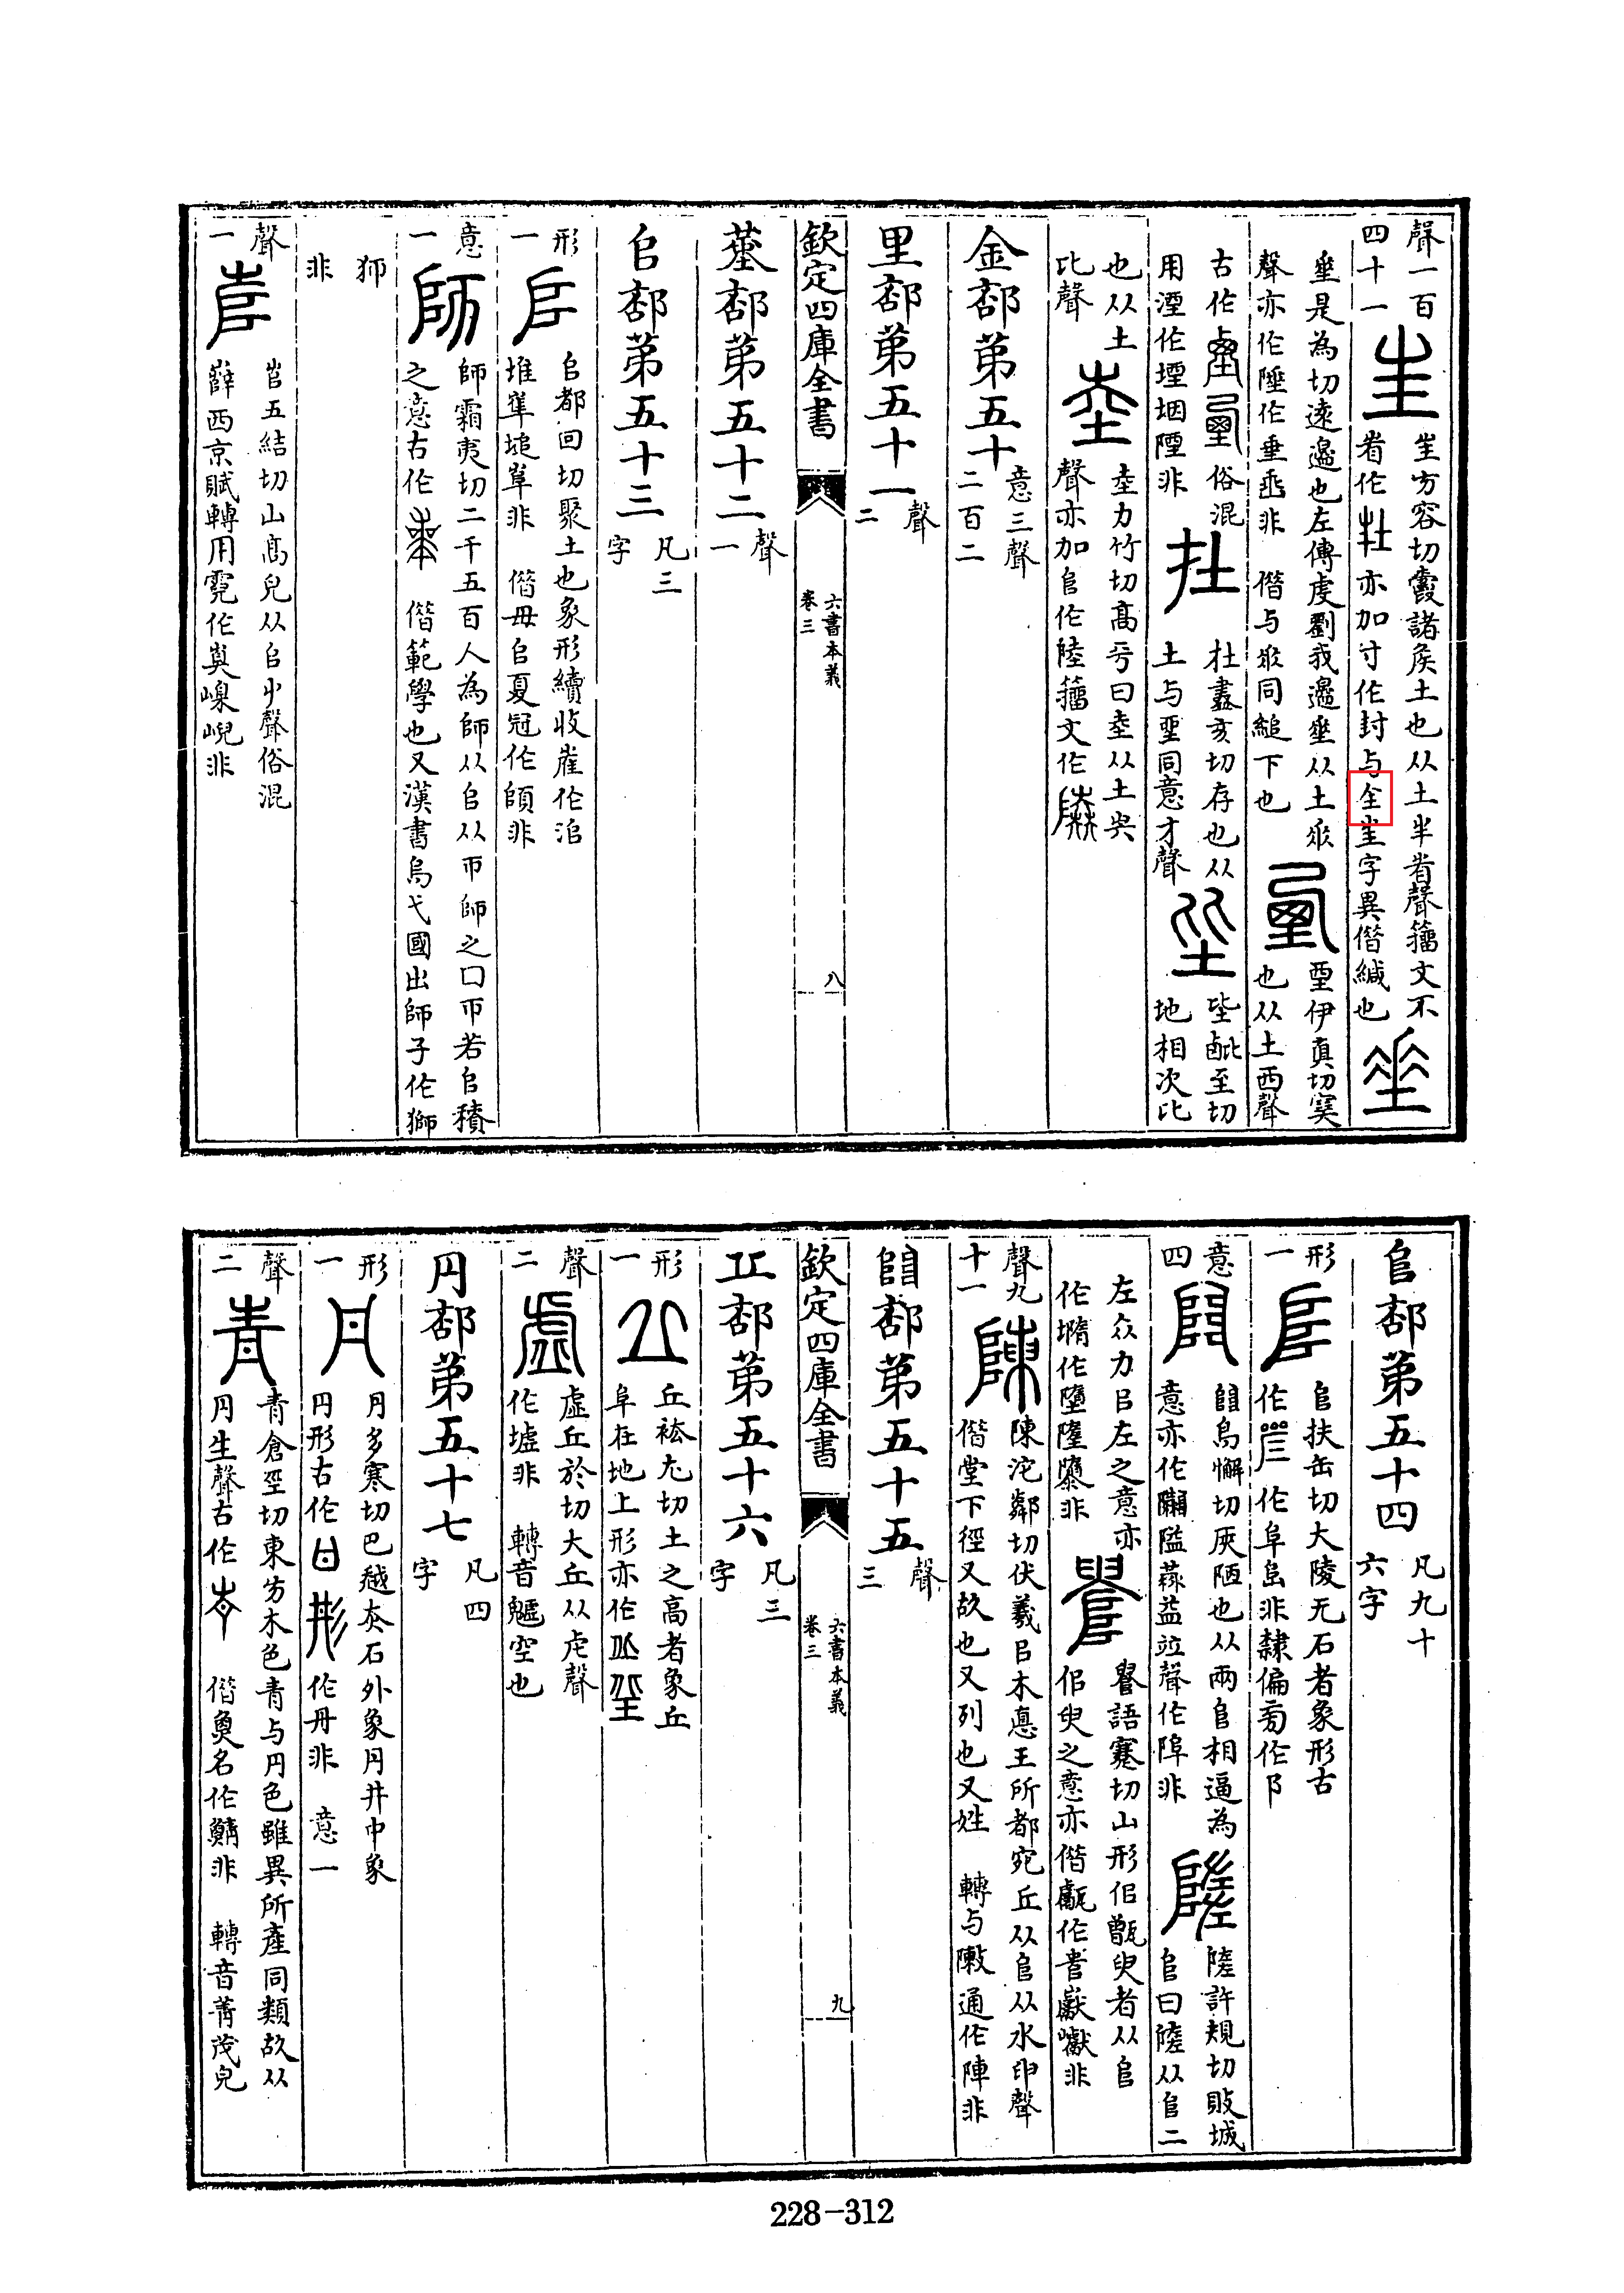 聲一百
四十一
𡉚方容切𡩋諸矦土也从土半省聲籒文不
省作𡉘亦加寸作封与全𡉚字異偕緘也
𡍮是為切遠邉也左傳虔劉我邉𡍮从土𠂹
聲亦作陲作垂𠂹非 偕与𠂹同縋下也
垔伊真切窒
也从土西聲
古作 俗混
用湮作堙堙陻非
在盡亥切存也从
土与𡊄同意才聲
坒毗至切
地相次比
也从土
比聲
坴力竹切高平曰坴从土𡴆
聲亦加𨸏作陸籒文作
金部第五十
意三聲
二百二
里部第五十一
聲
二
欽定四庫全書
六書本義
卷三
八
堇部第五十二
聲
一
𠂤部第五十三
凡三
字
形
一
𠂤都回切聚土也象形續收崖作㳬
堆𡺾塠𡸁非 偕毋𠂤夏冠作頧非
意
一
師霜夷切二千五百人為師从𠂤从帀師之囗帀若𠂤積
之意古作 偕範學也又漢書烏弋國出師子作獅
狮
非
聲
一
𡴎五結切山高皃从𠂤屮聲俗混
薛西京賦轉用霓作㠔嵲崼非
𨸏部第五十四
凡九十
六字
形
一
𨸏扶缶切大陵无石者象形古
作 作阜𨸏非隸偏旁作阝
意
四
𨺅烏懈切陿陋也从兩𨸏相逼為
意亦作隘䕄益竝聲作㢊非
隓許規切敗城
𨸏曰隓从𨸏二
左众力㠯左之意亦
作墮作墮隆隳非
𠳋語蹇切山形佀甑臾者从𨸏
佀臾之意亦偕甗作𠳋巚巘非
聲九
十一
陳沱鄰切伏羲㠯木悳王所都宛丘从𨸏从木申聲
偕堂下徑又故也又列也又姓 轉与敶通作陣非
𨺅部第五十五
聲
三
欽定四庫全書
六書本義
卷三
九
丠部第五十六
凡三
字
形
一
丘袪尤切土之高者象丘
阜在地上形亦作 𡊣
聲
二
虛丘於切大丘从虍聲
作墟非 轉音魖空也
丹部第五十七
凡四
字
形
一
丹多寒切巴越赤石外象丹井中象
丹形古作 作丹非 意一
聲
二
青倉經切東方木色青与丹色雖異所產同類故从
丹生聲古作 偕𩵋名作鯖非 轉音菁茂皃
228-312